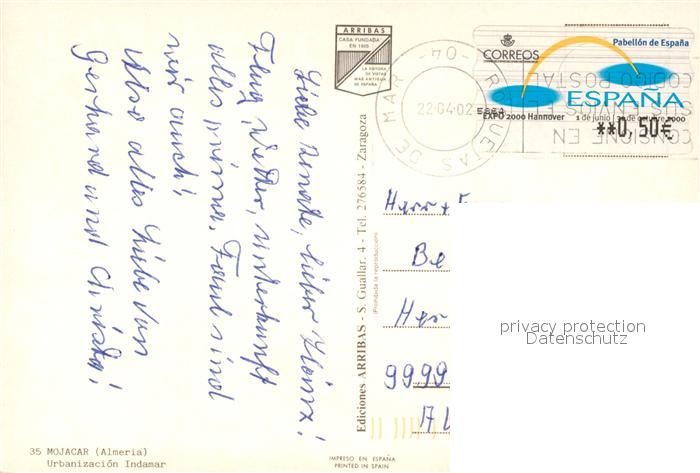 Liebe Renate, lieber Heinz!
Flug, Wetter, Unterkunft
alles prima. Faul sind
wir auch!
Also alles Liebe von
Gerhard und Christa!
35 MOJACAR (Almería)
Urbanización Indamar
ARRIBAS
CASA FUNDADA
EN 1905
LA EDITORA
DE VISTAS
MAS ANTIGUA
DE ESPAÑA
Ediciones ARRIBAS - S. Guallar, 4 - Tel. 276584 - Zaragoza
(Prohibida la reproducción)
IMPRESO EN ESPAÑA
PRINTED IN SPAIN
-04-
ROQUETAS DE MAR
22-04-02
CORREOS
Pabellón de España
ESPAÑA
EXPO 2000 Hannover
1 de junio / 31 de octubre 2000
**0,50€
CONSIGNE EN
SUS ENVIOS EL
CODIGO POSTAL
Herr + F
Be
Her
9999
privacy protection
Datenschutz